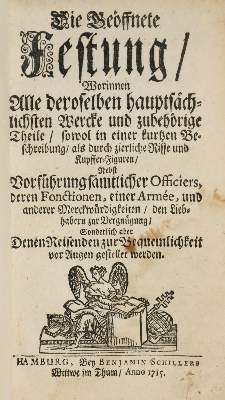 Die Geöffnete
Festung/
Worinnen
Alle deroselben hauptsäch-
lichsten Wercke und zubehörige
Theile / sowol in einer kurtzen Be-
schreibung / als durch zierliche Risse und
Kupffer-Figuren /
Nebst
Vorführung sämtlicher Officiers,
deren Fonctionen, einer Armée, und
anderer Merckwürdigkeiten / den Lieb-
habern zur Vergnügung /
Sonderlich aber
Denen Reisenden zur Bequemlichkeit
vor Augen gestellet werden.
HAMBURG, Bey BENJAMIN SCHILLERS
Wittwe im Thum / Anno 1715.